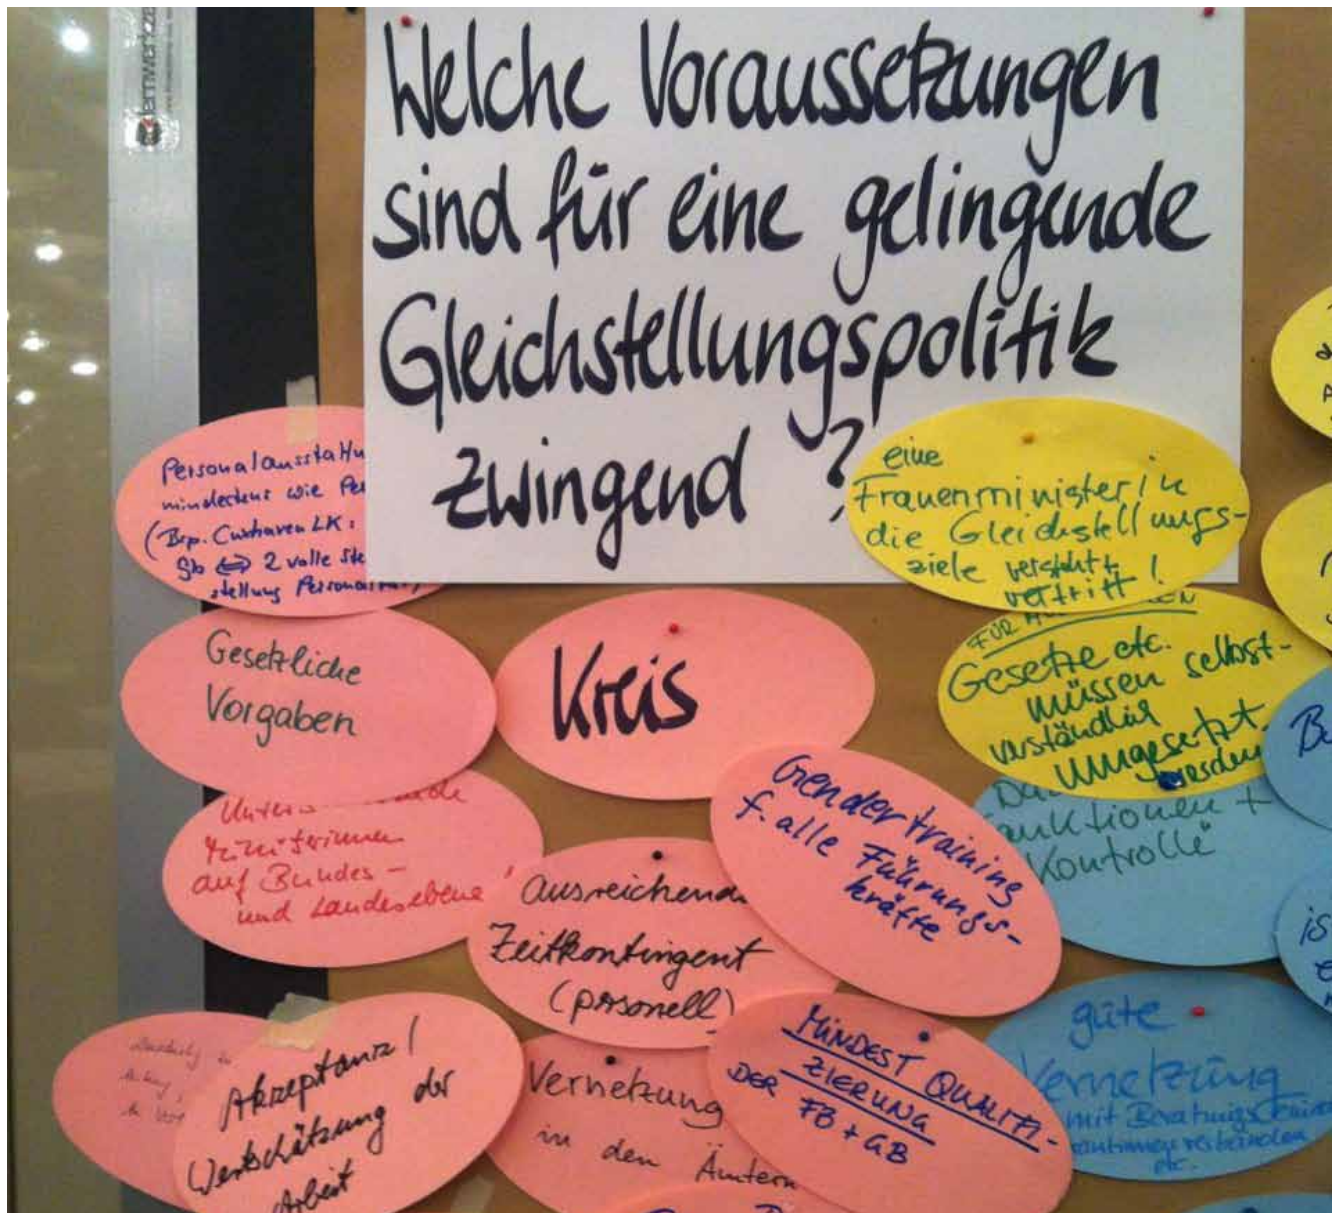 Welche Voraussetzungen
sind für eine gelingende
Gleichstellungspolitik
zwingend ?
Personalausstattun
mindestens wie Per
(Bsp. Cuxhaven LK:
Gb ⇔ 2 volle Ste
stellung
Gesetzliche
Vorgaben
Kreis
eine
Frauenministerin
die Gleichstellungs-
ziele verstärkt
vertritt !
FÜR
Gesetze etc.
müssen selbst-
verständlich
umgesetzt
werden
auf Bundes-
und Landesebene
ausreichend
Zeitkontingent
(personell)
Gendertraining
f. alle Führungs-
kräfte
anktionen +
Kontrolle
Akzeptanz /
Wertschätzung der
Arbeit
Vernetzung
in den Ämtern
MINDEST QUALIFI-
ZIERUNG
DER FB + GB
gute
Vernetzung
mit Beratungs
etc.
is